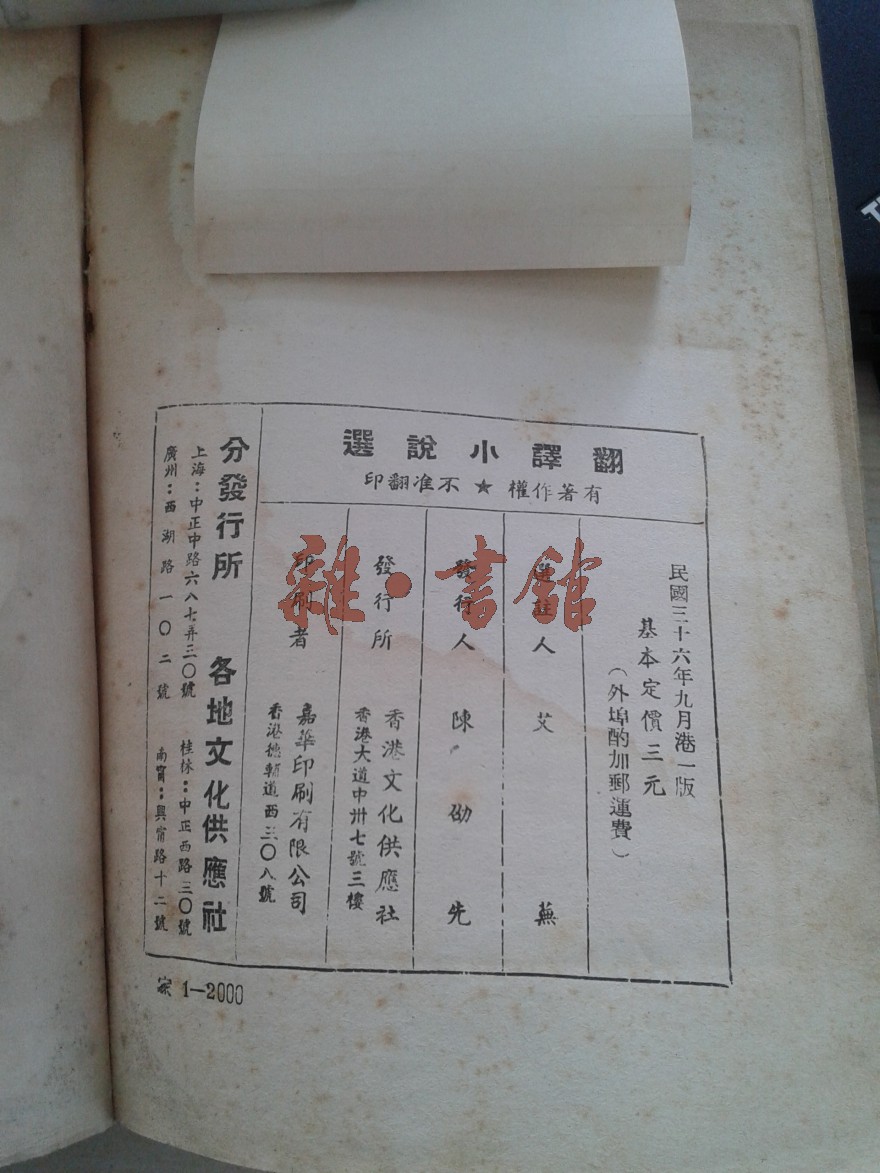 翻譯小說選
有著作權★不准翻印
民國三十六年九月港一版
基本定價三元
（外埠酌加郵運費）
選註人 艾蕪
發行人 陳劭先
發行所 香港文化供應社
香港大道中卅七號三樓
印刷者 嘉華印刷有限公司
香港德輔道西三〇八號
分發行所 各地文化供應社
上海：中正中路六八七弄三〇號
桂林：中正西路三〇號
廣州：西湖路一〇二號
南甯：興甯路十二號
1—2000
雜·書館